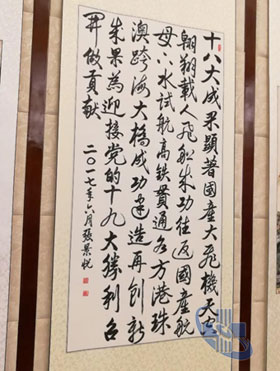 十八大成果顯著國產大飛機天空
翱翔載人飛船成功往返國產航
母下水試航高鐵貫通各方港珠
澳跨海大橋成功建造再創新
成果為迎接党的十九大勝利召
開做貢獻
二〇一七年六月張景悦